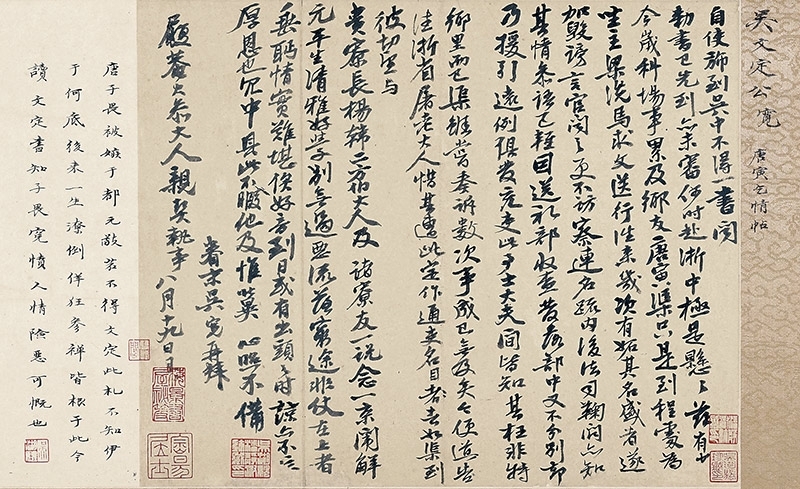 吳文定公寬
唐寅乞情帖
自使旆到吳中不得一書聞
動書已先到亦未審何時赴浙中極是懸〻茲有
今歲科場事累及鄉友唐寅渠只是到程處爲
坐主梁洗馬求文送行往來幾次有妬其名盛者遂
加毀謗言官聞之更不訪察連名疏內後法司鞫問亦知
其情參語已輕因送禮部收查發落部中又不分別却
乃援引遠例俱發充吏此事士大夫間皆知其枉非特
鄉里而已渠雖嘗奏訴數次事成已無及矣今便道告
往浙省屠老大人惜其遭此定作通吏名目者如渠到
彼切望與
貴寮長楊韓二方伯大人及諸寮友一說念一京闈解
元平生清雅好學別無過惡流落窮途非仗在上者
垂眄情實難堪俟好音到日或有出頭之時諒亦不忘
厚恩也冗中具此不暇他及惟冀心照不備
眷末吳寬再拜
履菴大參大人親契執事八月十九日具
唐子畏被嫉于都元敬若不得文定此札不知伊
于何底後來一生潦倒佯狂參禪皆根于此今
讀文定書知子畏寃憤人情險惡可慨也